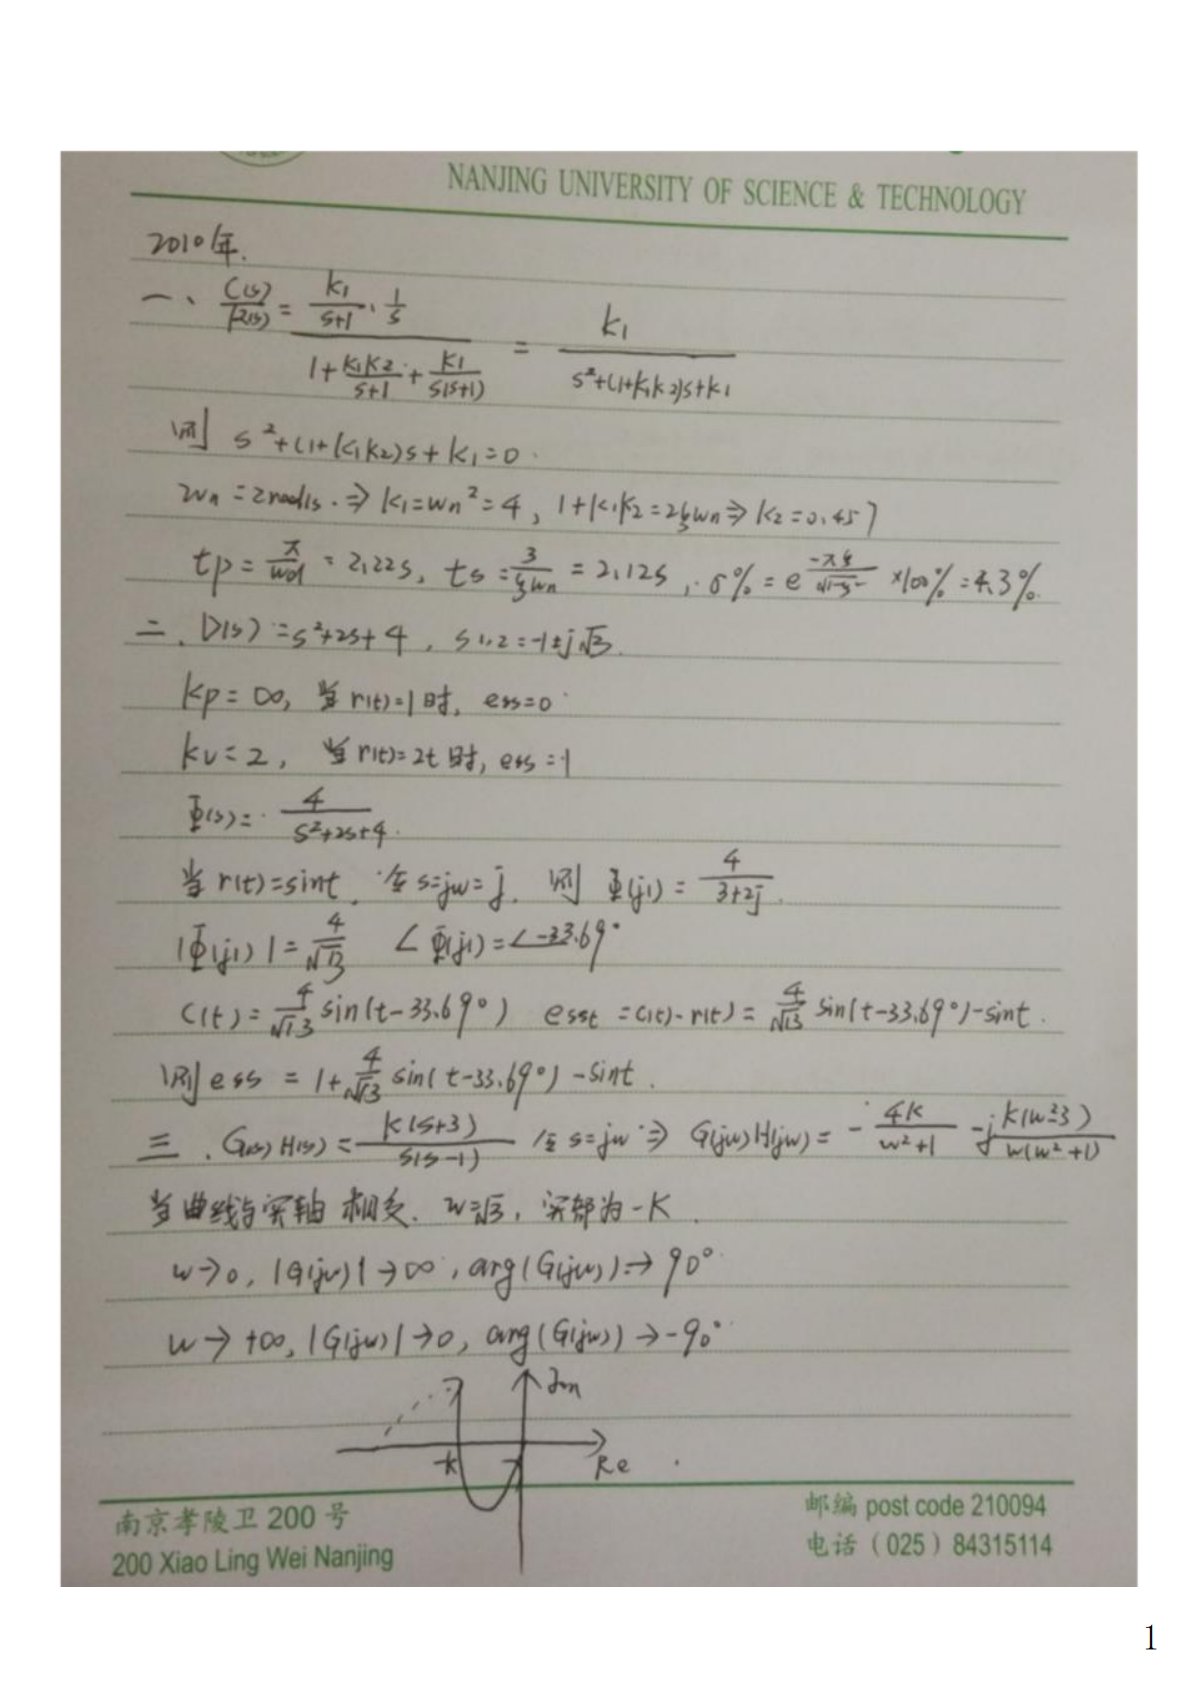 NANJING UNIVERSITY OF SCIENCE & TECHNOLOGY
2010年.
一、C(s)/R(s) = (k1/(s+1) · 1/s) / (1+k1k2/(s+1)+k1/(s(s+1))) = k1/(s²+(1+k1k2)s+k1)
则 s²+(1+k1k2)s+k1=0.
wn=2rad/s. ⇒ k1=wn²=4, 1+k1k2=2ξwn ⇒ k2=0.457
tp=π/wd=2.22s, ts=3/(ξwn)=2.12s, σ%=e^(-πξ/√(1-ξ²))×100%=4.3%.
二. D(s)=s²+2s+4, s1,2=-1±j√3.
kp=∞, 当r(t)=1时, ess=0
kv=2, 当r(t)=2t时, ess=1
Φ(s)=4/(s²+2s+4).
当r(t)=sint, 令s=jw=j. 则 Φ(j1)=4/(3+2j).
|Φ(j1)|=4/√13 ∠Φ(j1)=∠-33.69°
C(t)=4/√13 sin(t-33.69°) esst=c(t)-r(t)=4/√13 sin(t-33.69°)-sint.
则ess=1+4/√13 sin(t-33.69°)-sint.
三. G(s)H(s)=k(s+3)/(s(s-1)) 令s=jw ⇒ G(jw)H(jw)=-4k/(w²+1)-j k(w²-3)/(w(w²+1))
当曲线与实轴相交. w=√3, 实部为-K.
w→0, |G(jw)|→∞, arg(G(jw))→90°
w→+∞, |G(jw)|→0, arg(G(jw))→-90°
Im
-k
Re
南京孝陵卫200号
200 Xiao Ling Wei Nanjing
邮编 post code 210094
电话（025）84315114
1